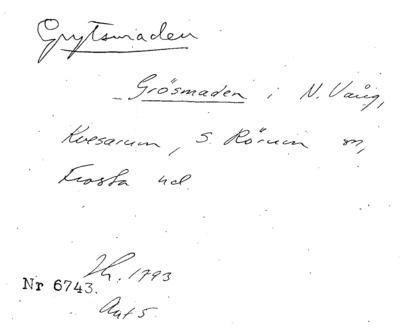 Grytsmaden
Grösmaden i N. Vång,
Kvesarum, S. Rörum sn,
Frosta hd.
Th. 1793
Nr 6743.
Akt 5.